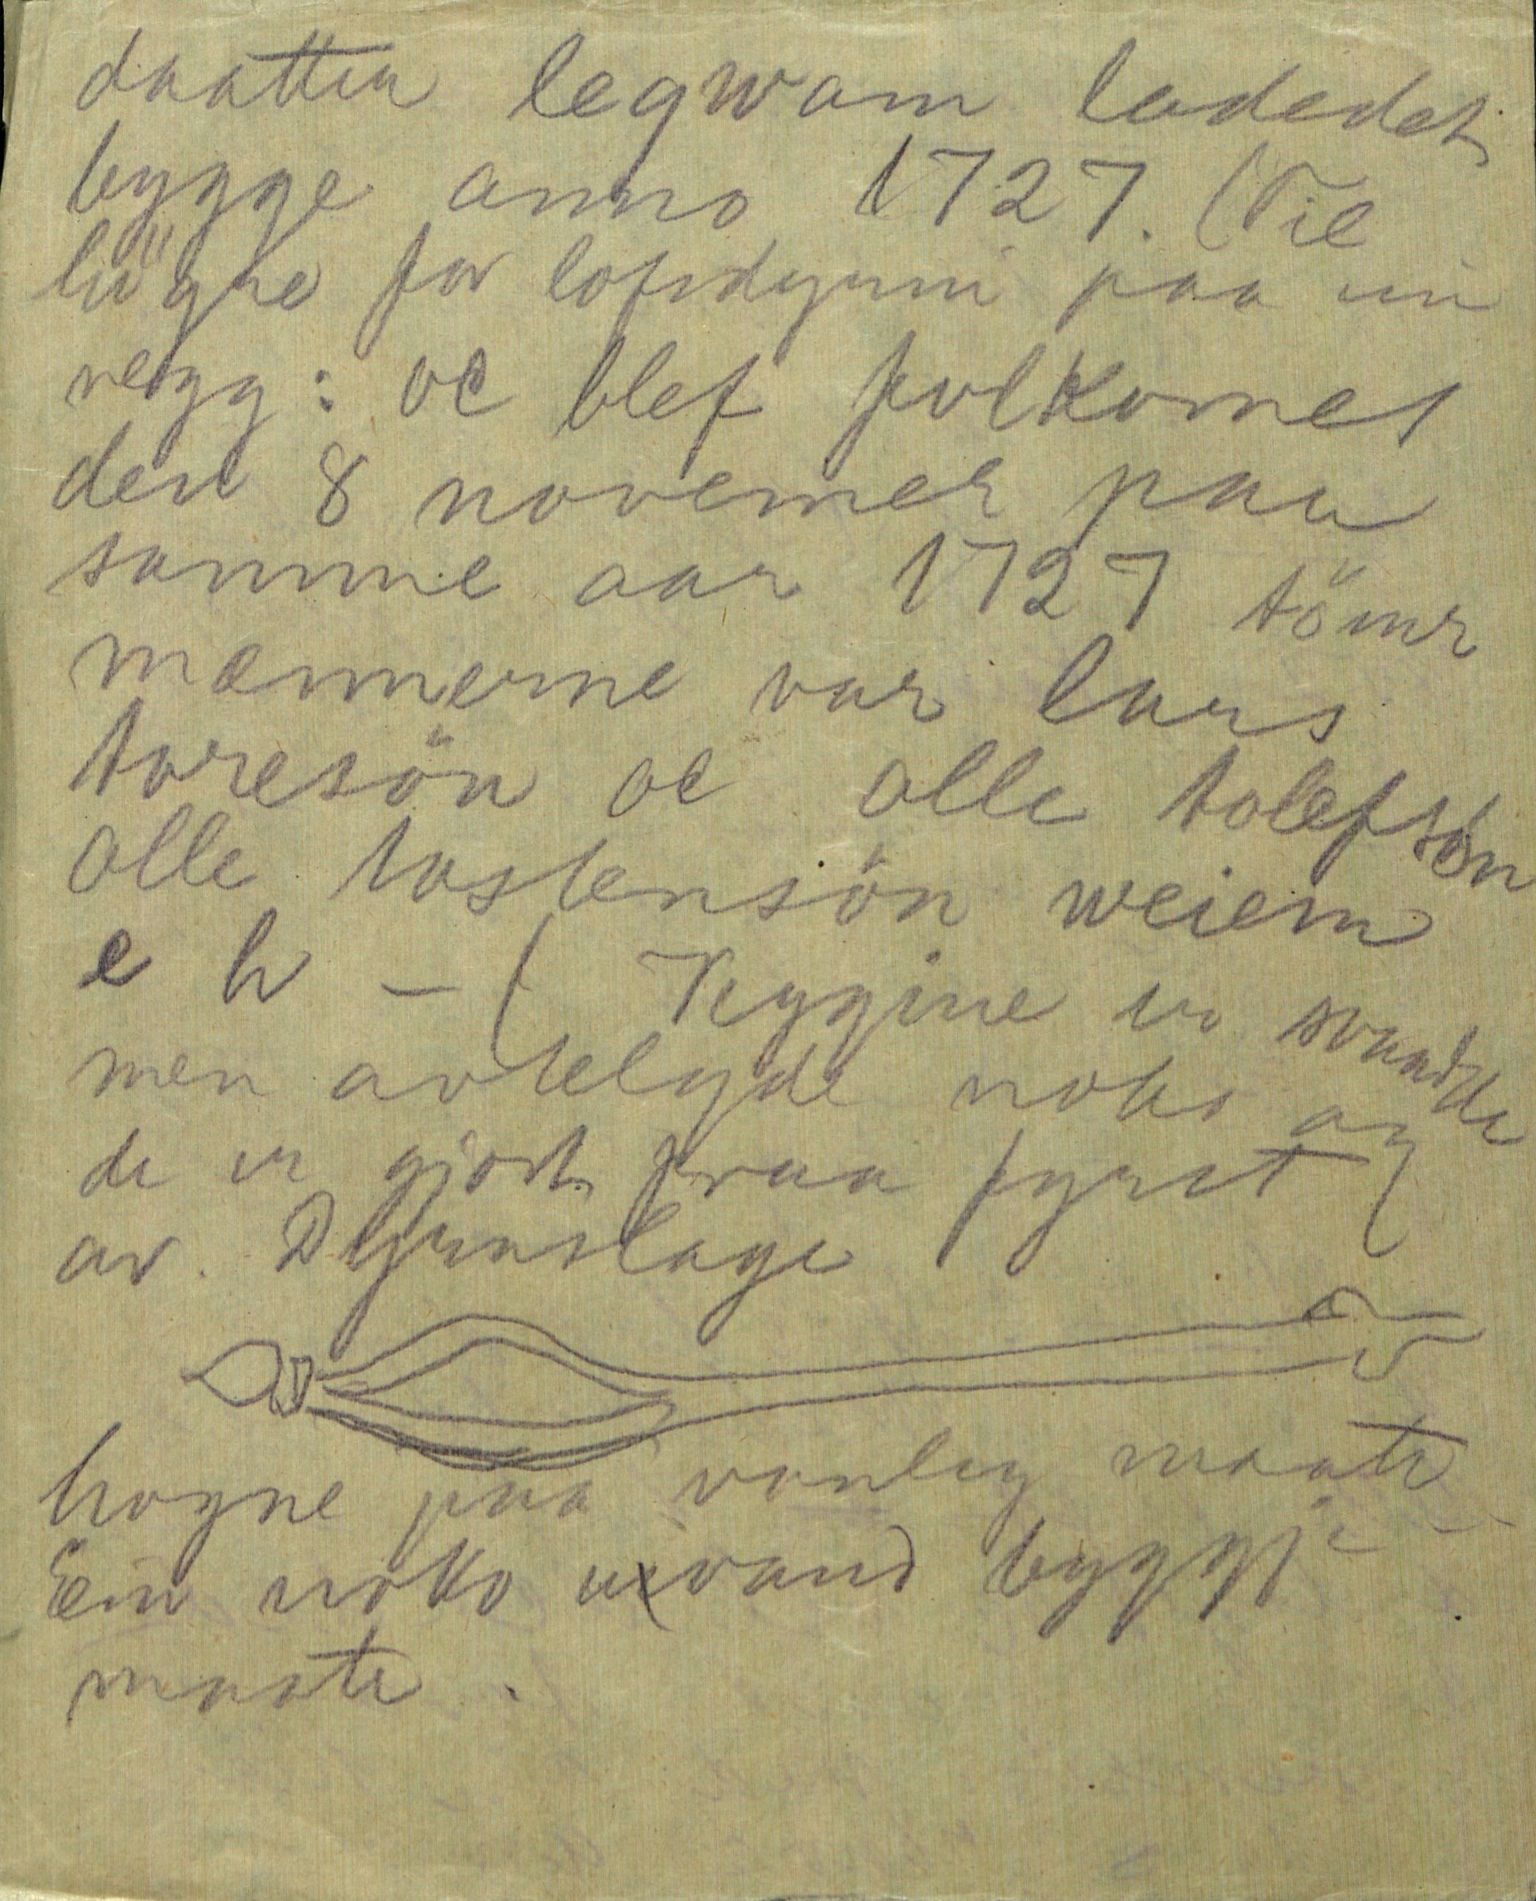 daatter legwam ladedet
bygge anno 1727. (Til
högre for loftdynni paa
vegg: oc blef folkomet
den 8 novemer paa
samme aar 1727 tömr
mænnerne var lars
toresön oc olle tolefsön
olle tostensön weiem
e h – (
men avtelgde noko og
de er gjort fraa fyrst
av.
hogne paa vanleg maate
Ein noko vand byggje
maate.